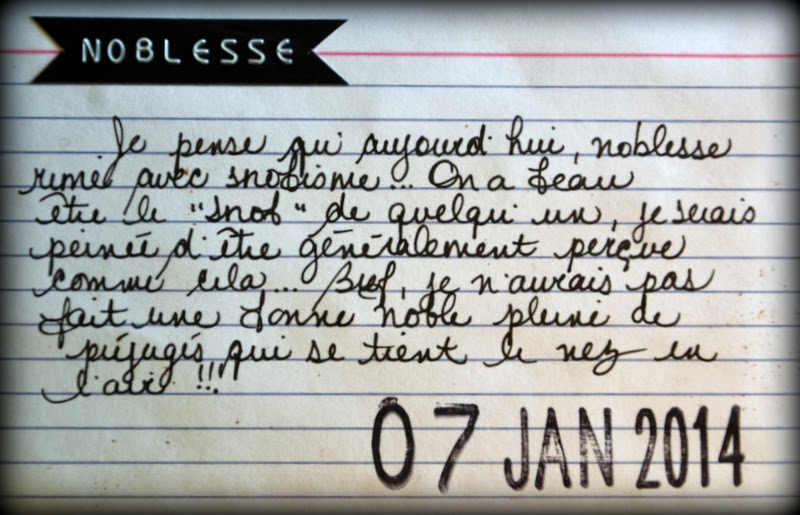 NOBLESSE
Je pense qu'aujourd'hui, noblesse
rime avec snobisme... On a beau
être le "snob" de quelqu'un, je serais
peinée d'être généralement perçue
comme cela... Bref, je n'aurais pas
fait une bonne noble pleine de
préjugés, qui se tient le nez en
l'air !!!
07 JAN 2014